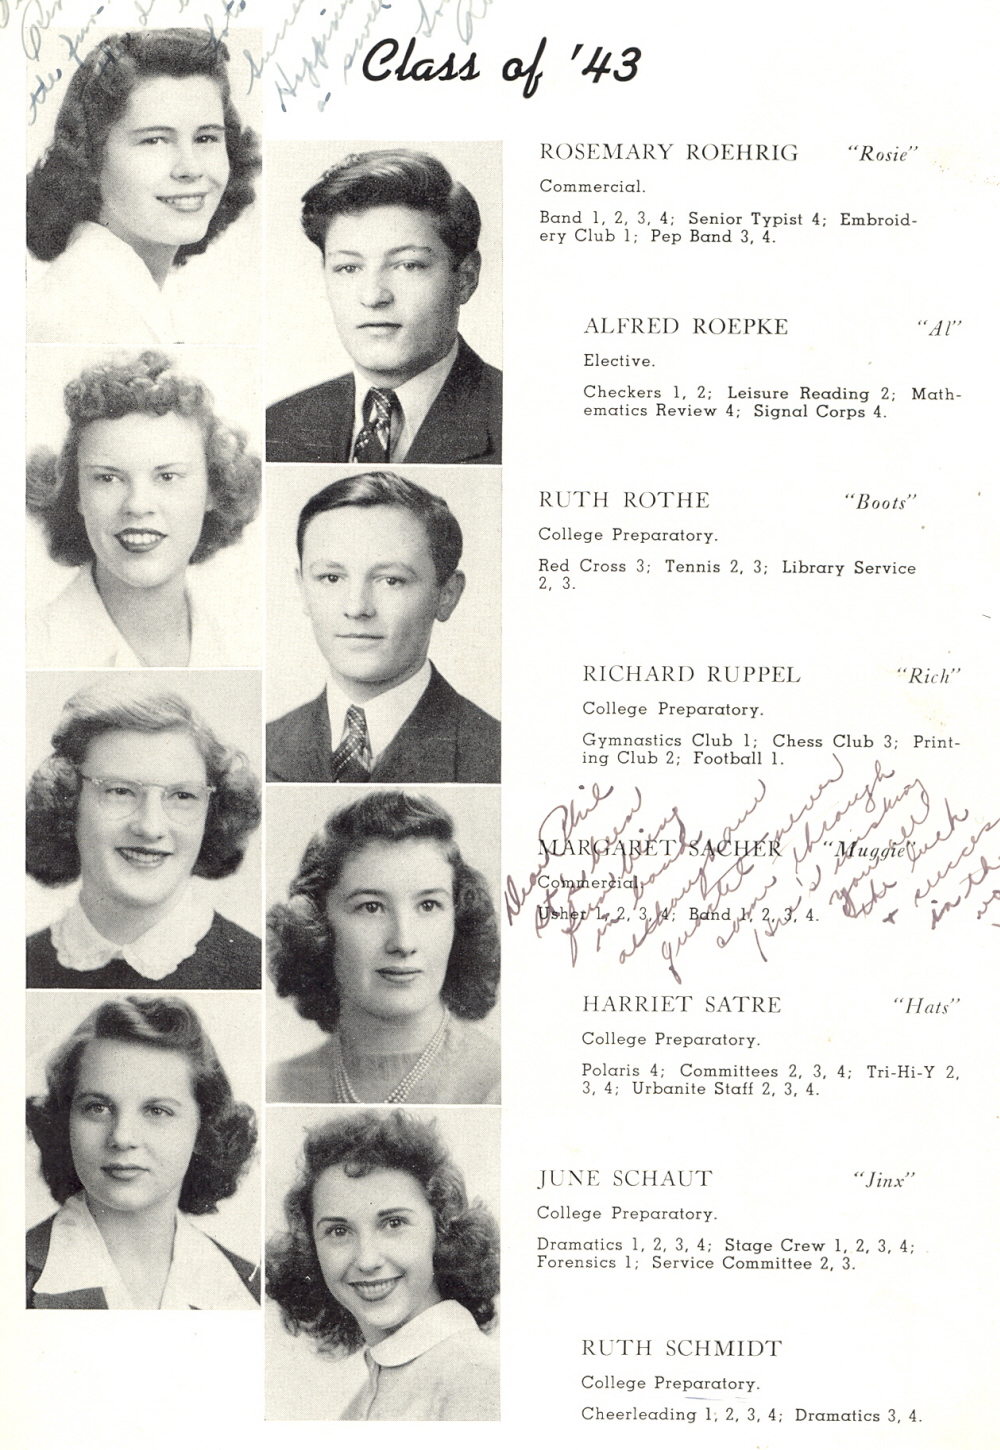 Class of '43
ROSEMARY ROEHRIG "Rosie"
Commercial.
Band 1, 2, 3, 4; Senior Typist 4; Embroid-
ery Club 1; Pep Band 3, 4.
ALFRED ROEPKE "Al"
Elective.
Checkers 1, 2; Leisure Reading 2; Math-
ematics Review 4; Signal Corps 4.
RUTH ROTHE "Boots"
College Preparatory.
Red Cross 3; Tennis 2, 3; Library Service
2, 3.
RICHARD RUPPEL "Rich"
College Preparatory.
Gymnastics Club 1; Chess Club 3; Print-
ing Club 2; Football 1.
MARGARET SACHER "Muggie"
Commercial.
Usher 1, 2, 3, 4; Band 1, 2, 3, 4.
Dear Phil
It's been
in band
although our
quartet never
came through
the luck
+ success
in the
HARRIET SATRE "Hats"
College Preparatory.
Polaris 4; Committees 2, 3, 4; Tri-Hi-Y 2,
3, 4; Urbanite Staff 2, 3, 4.
JUNE SCHAUT "Jinx"
College Preparatory.
Dramatics 1, 2, 3, 4; Stage Crew 1, 2, 3, 4;
Forensics 1; Service Committee 2, 3.
RUTH SCHMIDT
College Preparatory.
Cheerleading 1, 2, 3, 4; Dramatics 3, 4.